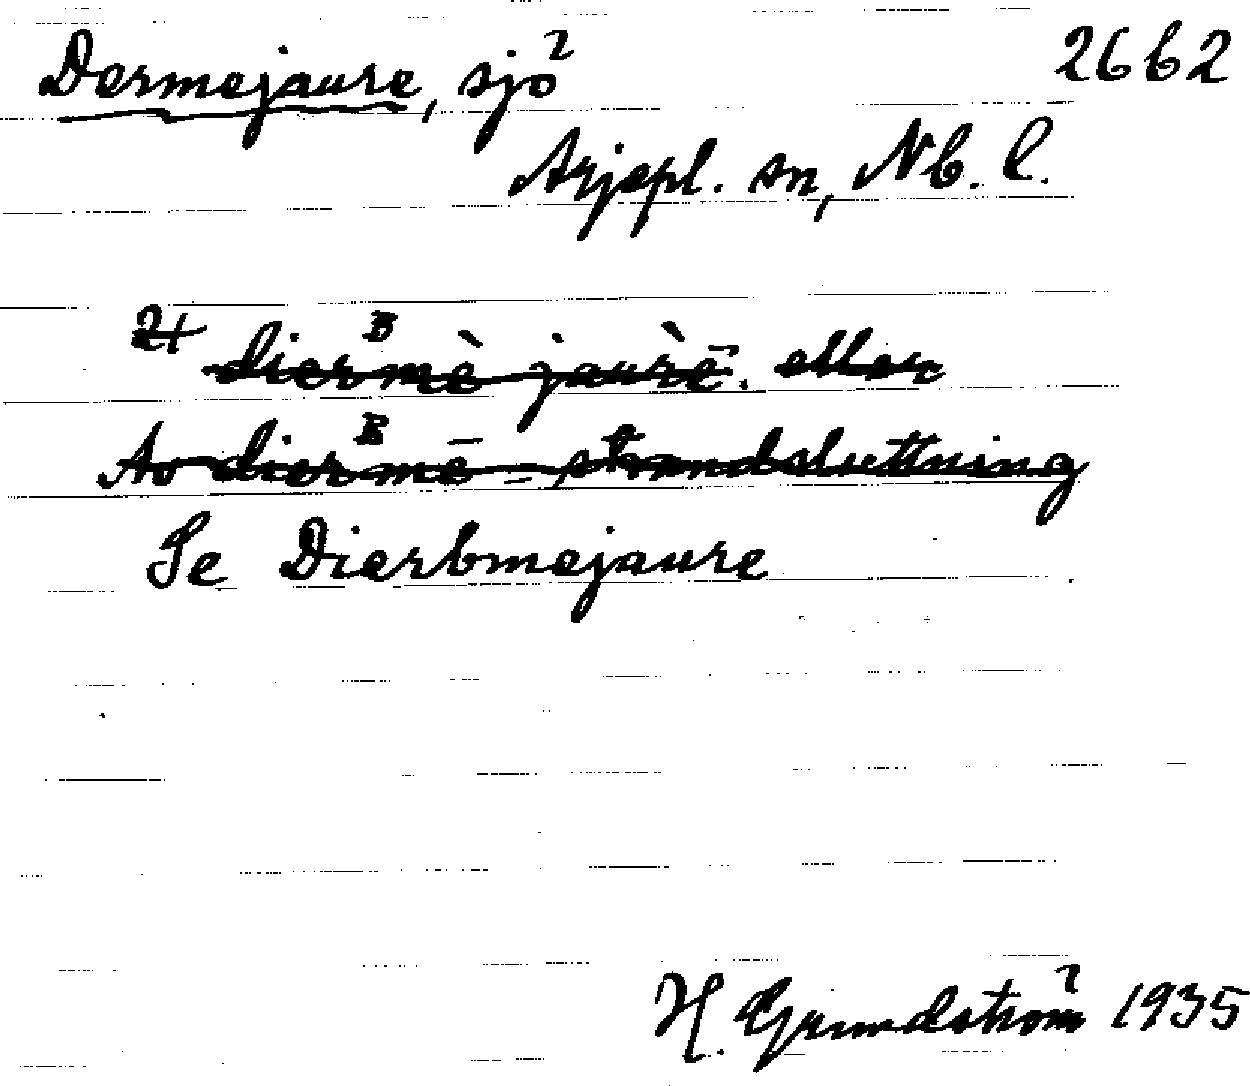 Dermejaure, sjö 2662
Arjepl. sn, Nb. l.
dierᴮmè jaurè. eller
Av dierᴮmē - strandsluttning
Se Dierbmejaure
H. Grundström 1935